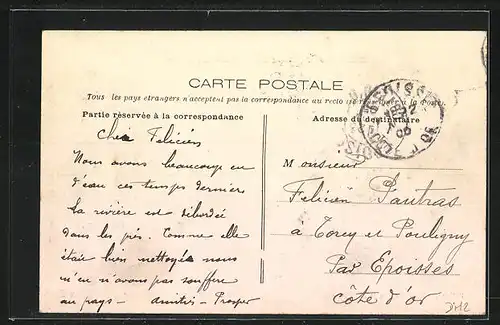 CARTE POSTALE
Tous les pays etrangers n'acceptent pas la correspondance au recto (se renseigner à la Poste)
Partie réservée à la correspondance
Adresse du destinataire
Cher Felicien
Nous avons beaucoup eu
d'eau ces temps derniers
la rivière est débordée
dans les prés. Comme elle
était bien nettoyée nous
n'en n'avons pas souffert
au pays - amitiés - Prosper
Monsieur
Felicien Pautras
à Torcy et Pouligny
Par Epoisses
Côte d'or